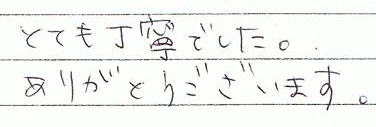 とても丁寧でした。
ありがとうございます。